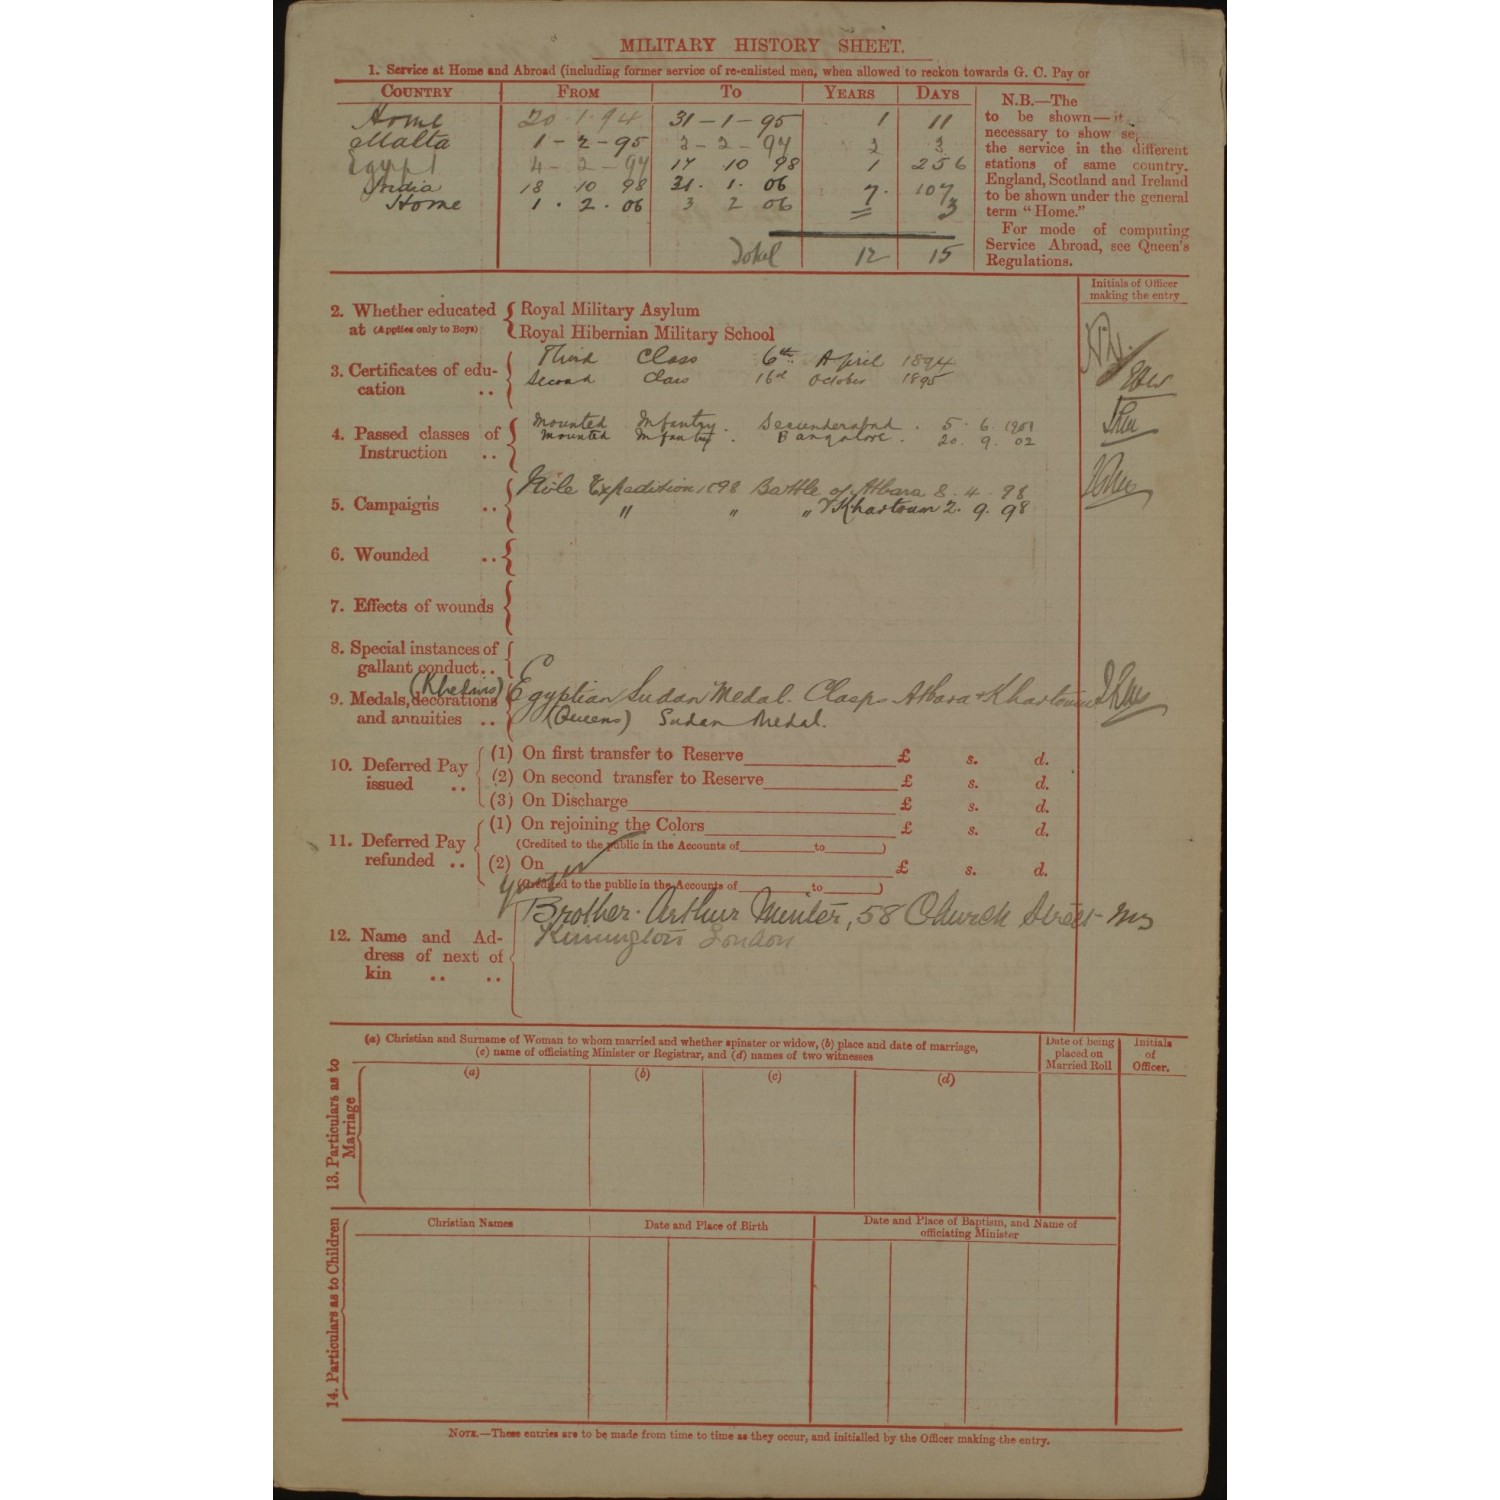 MILITARY HISTORY SHEET.
1. Service at Home and Abroad (including former service of re-enlisted men, when allowed to reckon towards G. C. Pay or
COUNTRY FROM TO YEARS DAYS
Home 20.1.94 31-1-95 1 11
Malta 1-2-95 3-2-97 2 3
Egypt 4-2-97 17 10 98 1 256
India 18 10 98 31.1.06 7. 107
Home 1.2.06 3 2 06 = 3
Total 12 15
N.B.—The
to be shown—it
necessary to show
the service in the different
stations of same country.
England, Scotland and Ireland
to be shown under the general
term "Home."
For mode of computing
Service Abroad, see Queen's
Regulations.
Initials of Officer
making the entry
2. Whether educated at (Applies only to Boys)
Royal Military Asylum
Royal Hibernian Military School
3. Certificates of edu-
cation ..
Third Class 6th April 1894
Second Class 16d October 1895
4. Passed classes of
Instruction ..
Mounted Infantry. Secunderabad. 5.6.1901
Mounted Infantry. Bangalore. 20.9.02
5. Campaigns ..
Nile Expedition 1898 Battle of Atbara 8.4.98
" " " & Khartoum 2.9.98
6. Wounded ..
7. Effects of wounds
8. Special instances of
gallant conduct..
9. Medals, decorations
and annuities ..
(Khedives) Egyptian Sudan Medal. Clasps Atbara & Khartoum
(Queens) Sudan Medal.
10. Deferred Pay
issued ..
(1) On first transfer to Reserve £ s. d.
(2) On second transfer to Reserve £ s. d.
(3) On Discharge £ s. d.
11. Deferred Pay
refunded ..
(1) On rejoining the Colors £ s. d.
(Credited to the public in the Accounts of to )
(2) On £ s. d.
(Credited to the public in the Accounts of to )
12. Name and Ad-
dress of next of
kin .. ..
younger
Brother. Arthur Minter, 58 Church Street
Kennington London
13. Particulars as to
Marriage
(a) Christian and Surname of Woman to whom married and whether spinster or widow, (b) place and date of marriage,
(c) name of officiating Minister or Registrar, and (d) names of two witnesses
Date of being
placed on
Married Roll
Initials
of
Officer.
(a) (b) (c) (d)
14. Particulars as to Children
Christian Names Date and Place of Birth Date and Place of Baptism, and Name of
officiating Minister
NOTE.—These entries are to be made from time to time as they occur, and initialled by the Officer making the entry.